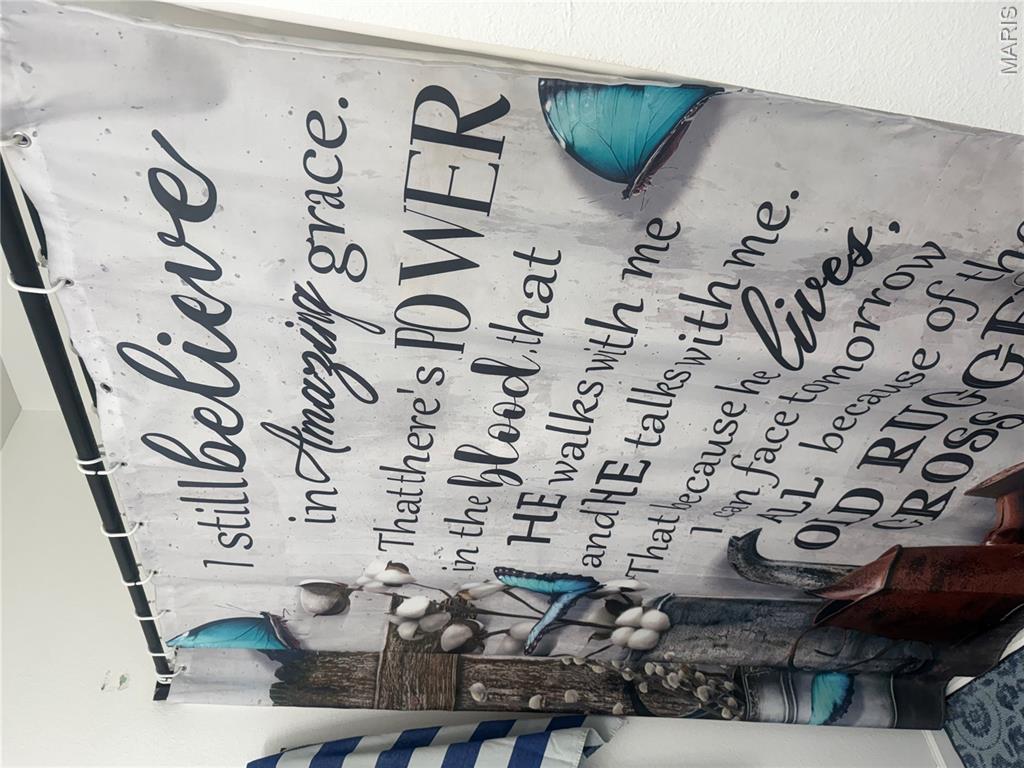 I still believe
in Amazing grace.
That there's POWER
in the blood, that
HE walks with me
and HE talks with me.
That because he lives,
I can face tomorrow
ALL because of the
OLD RUGGED
CROSS
MARIS